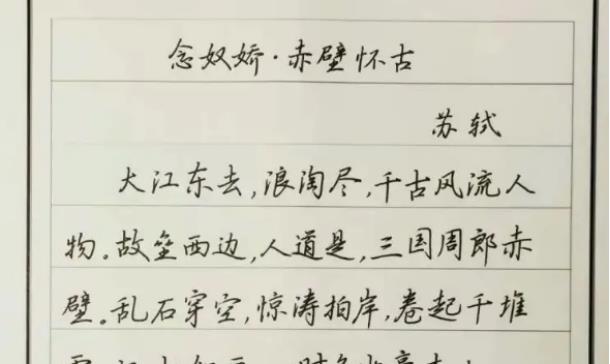 念奴娇·赤壁怀古
苏轼
大江东去,浪淘尽,千古风流人
物。故垒西边,人道是,三国周郎赤
壁。乱石穿空,惊涛拍岸,卷起千堆